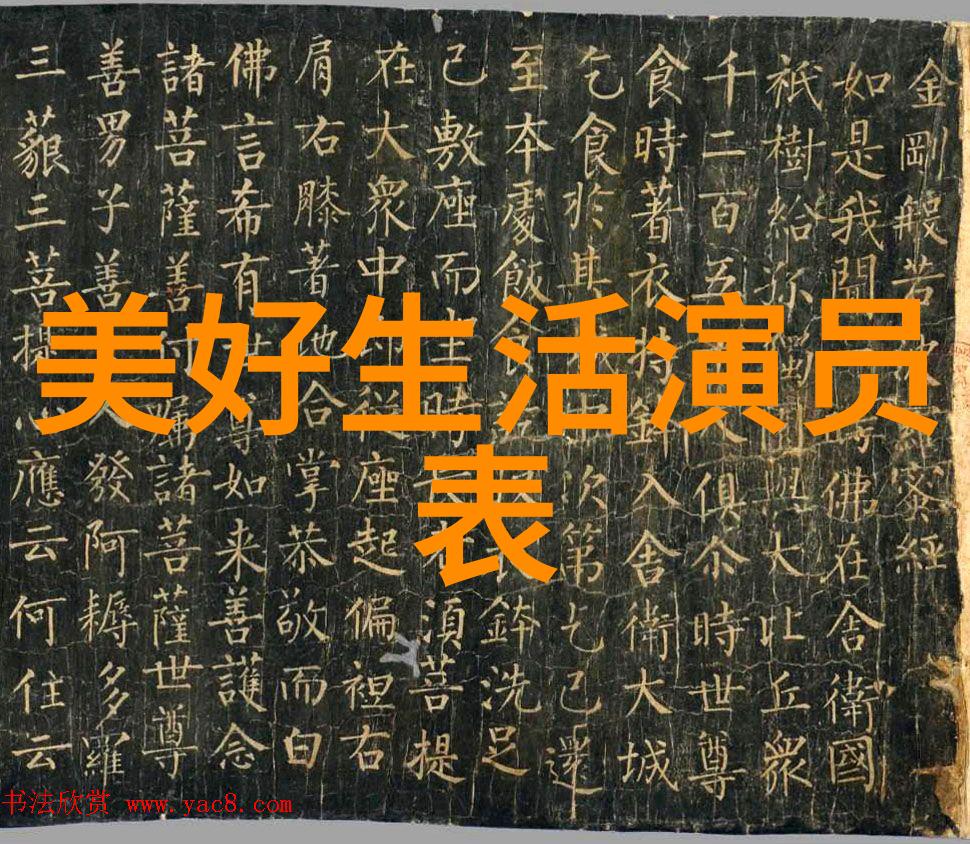 美好生活演员
表
金剛般若蜜經
如是我聞時佛在舍衛國
祇樹給孤獨園與大比丘眾
千二百五人俱尒時世尊
食時著衣持鉢入舍衛大城
乞食於其城中次第乞已還
至本處飯食訖衣鉢洗足
已敷座而坐時老須菩提
在大眾中即從座起偏袒右
肩右膝著地合掌恭敬而白
佛言希有世尊如来善護念
諸菩薩善付囑諸菩薩世尊
善男子善人發阿耨多羅
三藐三菩提心應云何住云
书法欣赏 www.yac8.com